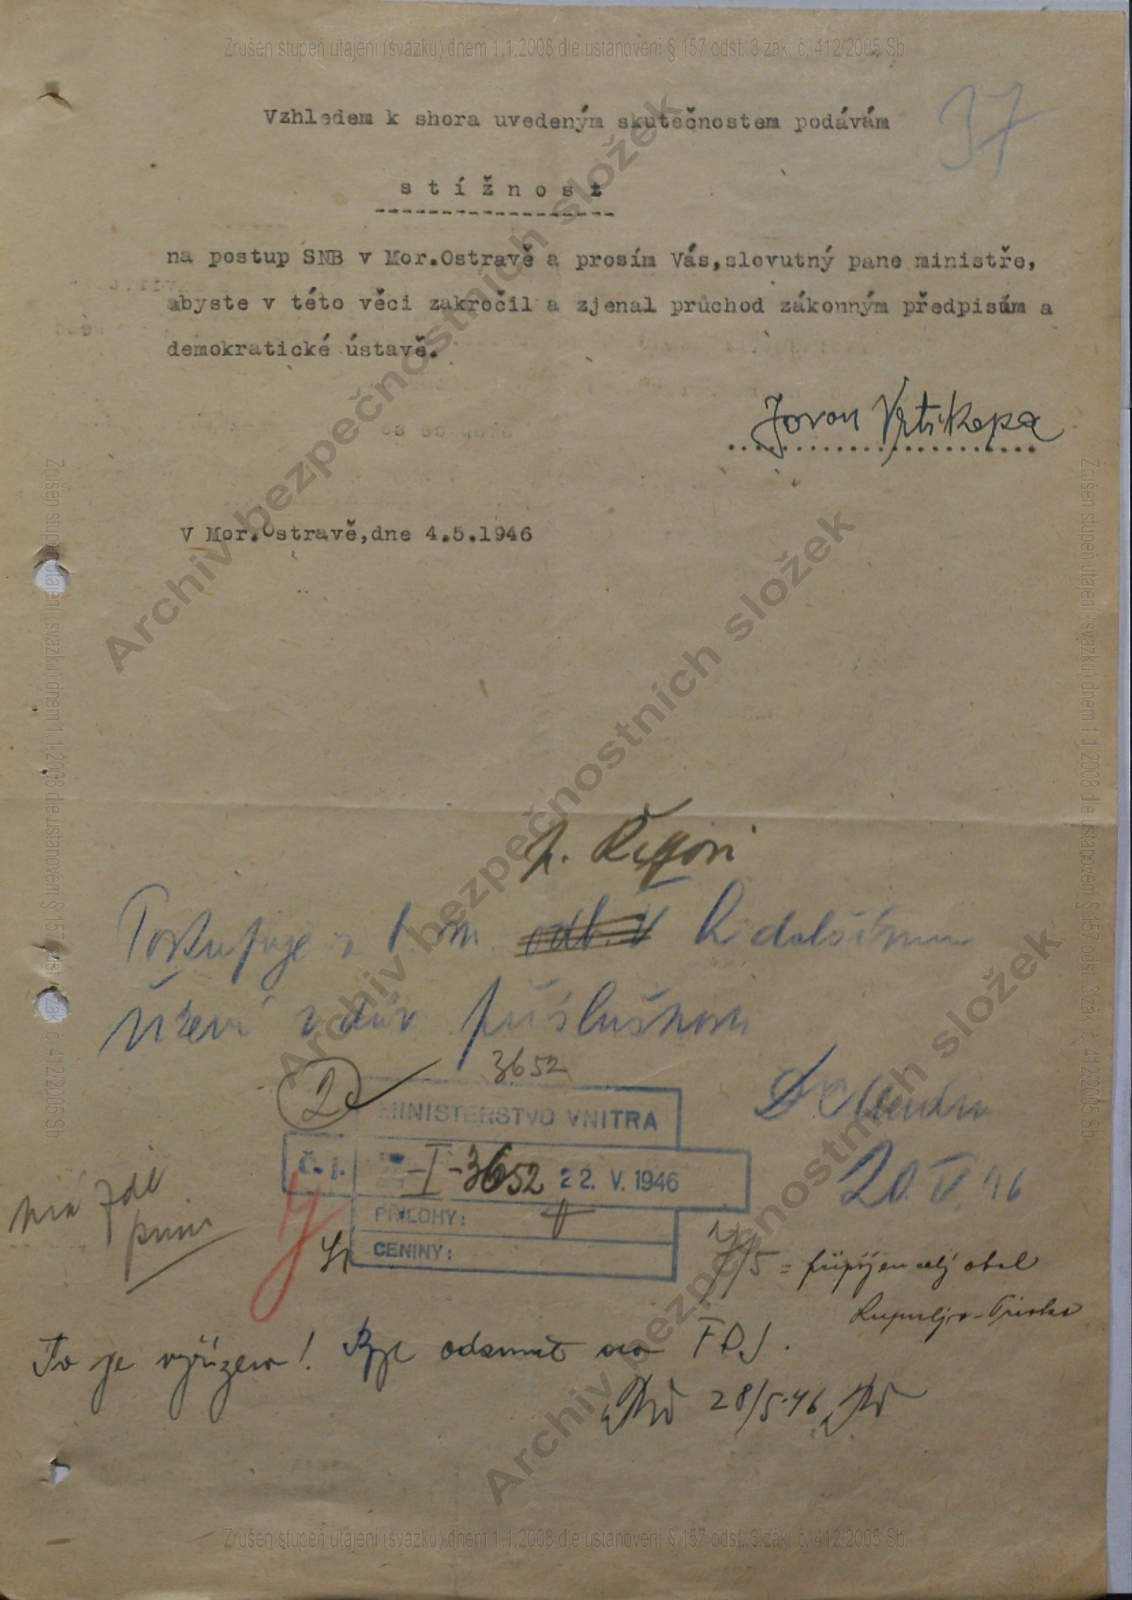 Zrušen stupeň utajení (svazku) dnem 1.1.2008 dle ustanovení § 157 odst. 3 zák. č. 412/2005 Sb.
37
Vzhledem k shora uvedeným skutečnostem podávám
stížnost
na postup SNB v Mor.Ostravě a prosím Vás,slovutný pane ministře,
abyste v této věci zakročil a zjenal průchod zákonným předpisům a
demokratické ústavě.
Jovan Vrtikapa
V Mor.Ostravě,dne 4.5.1946
Archiv bezpečnostních složek
Archiv bezpečnostních složek
Archiv bezpečnostních složek
Zrušen stupeň utajení (svazku) dnem 1.1.2008 dle ustanovení § 157 odst. 3 zák. č. 412/2005 Sb
Zrušen stupeň utajení (svazku) dnem 1.1.2008 dle ustanovení § 157 odst. 3 zák. č. 412/2005 Sb
p.
Postupuje odb. V k dalšímu
řízení z dův příslušnosti
3652
2c
MINISTERSTVO VNITRA
20.V.46
č. j. -I-3652 22. V. 1946
PŘÍLOHY:
CENINY:
má zde
/5 = připojen celý obal
To je vyřízeno! Byl odsunut do FDJ.
28/5.46
Zrušen stupeň utajení (svazku) dnem 1.1.2008 dle ustanovení § 157 odst. 3 zák. č. 412/2005 Sb.